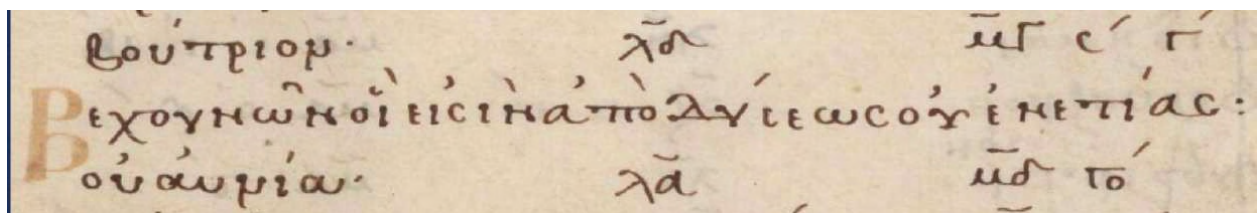 βούτριον· λ̄δ μ̄γ ς´ γ´
Βεχουνῶν οἳ εἰσὶν ἀπὸ δύσεως οὐενετίας:
οὐαυνία· λ̄α μ̄δ γο´